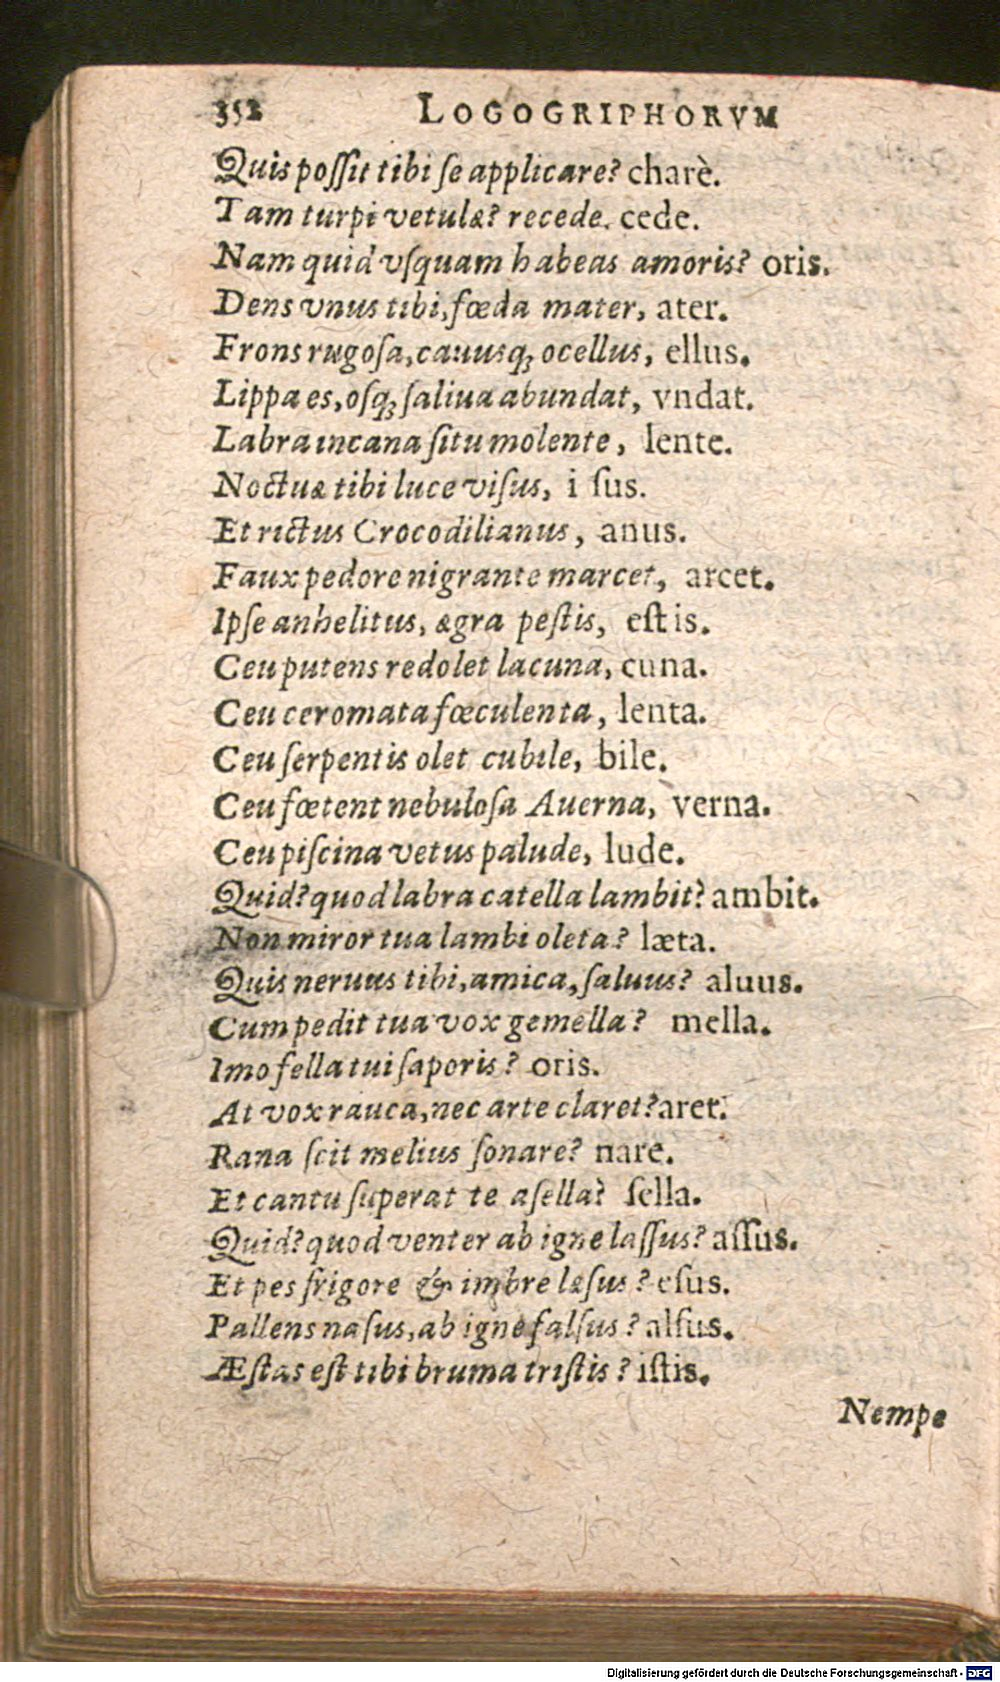 352 LOGOGRIPHORVM
Quis poſſit tibi ſe applicare? charè.
Tam turpi vetulæ? recede. cede.
Nam quid vſquam habeas amoris? oris.
Dens vnus tibi, fœda mater, ater.
Frons rugoſa, cauusq́; ocellus, ellus.
Lippa es, oſq́; ſaliua abundat, vndat.
Labra incana ſitu molente, lente.
Noctuæ tibi luce viſus, i ſus.
Et rictus Crocodilianus, anus.
Faux pedore nigrante marcet, arcet.
Ipſe anhelitus, ægra peſtis, eſtis.
Ceu putens redolet lacuna, cuna.
Ceu ceromata fœculenta, lenta.
Ceu ſerpentis olet cubile, bile.
Ceu fœtent nebuloſa Auerna, verna.
Ceu piſcina vetus palude, lude.
Quid? quod labra catella lambit? ambit.
Non miror tua lambi oleta? læta.
Quis neruus tibi, amica, ſaluus? aluus.
Cum pedit tua vox gemella? mella.
Imo fella tui ſaporis? oris.
At vox rauca, nec arte claret? aret.
Rana ſcit melius ſonare? nare.
Et cantu ſuperat te aſella? ſella.
Quid? quod venter ab igne laſſus? aſſus.
Et pes frigore & imbre læſus? eſus.
Pallens naſus, ab igne falſus? alſus.
Æſtas eſt tibi bruma triſtis? iſtis.
Nempe
Digitalisierung gefördert durch die Deutsche Forschungsgemeinschaft - DFG